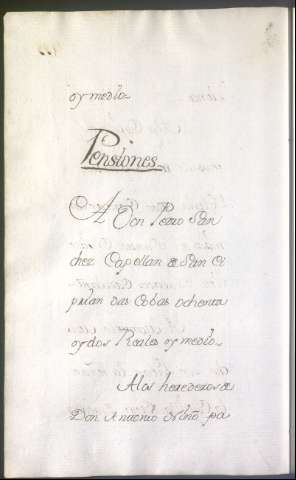 oy medio
Pensiones
A Don Pedro San
chez Capellan de San Ci
prian das Cobas ochenta
oy dos Reales oy medio
A los herederos de
Don Antonio